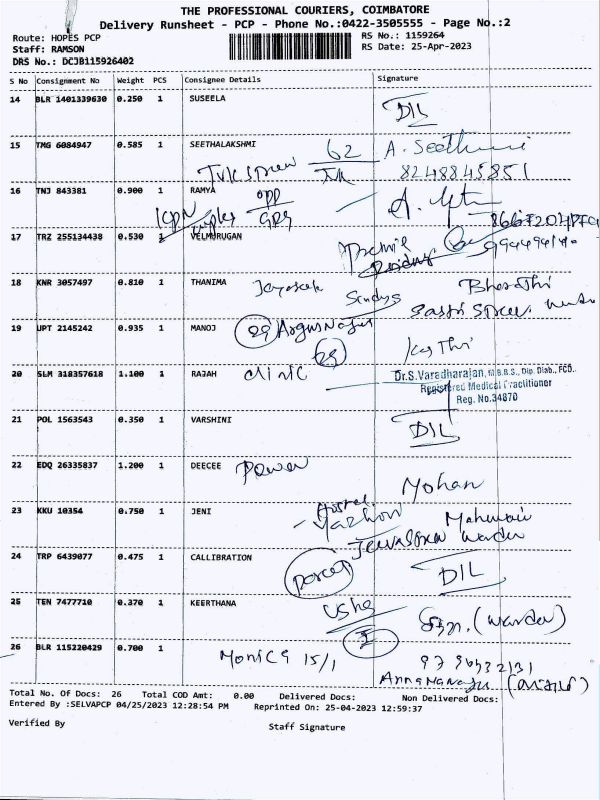 THE PROFESSIONAL COURIERS, COIMBATORE
Delivery Runsheet - PCP - Phone No.:0422-3505555 - Page No.:2
Route: HOPES PCP
RS No.: 1159264
Staff: RAMSON
RS Date: 25-Apr-2023
DRS No.: DCJB115926402
S No Consignment No Weight PCS Consignee Details Signature
14 BLR 1401339630 0.250 1 SUSEELA
DIL
15 TMG 6084947 0.585 1 SEETHALAKSHMI
62 A.
8248845851
16 TNJ 843381 0.900 1 RAMYA
opp
17 TRZ 255134438 0.530 1 VELMURUGAN
18 KNR 3057497 0.810 1 THANIMA
Bharathi
19 UPT 2145242 0.935 1 MANOJ
20 SLM 318357618 1.100 1 RAJAH clinic
Dr.S.Varadharajan, M.B.B.S., Dip. Diab., FCD.
Registered Medical Practitioner
Reg. No.34870
21 POL 1563543 0.350 1 VARSHINI
DIL
22 EDQ 26335837 1.200 1 DEECEE Power
Mohan
23 KKU 10354 0.750 1 JENI
Hostel
24 TRP 6439077 0.475 1 CALLIBRATION
DIL
25 TEN 7477710 0.370 1 KEERTHANA
Usha
Sgn. (warden)
26 BLR 115220429 0.700 1
Monica 15/1
Total No. Of Docs: 26 Total COD Amt: 0.00 Delivered Docs: Non Delivered Docs:
Entered By :SELVAPCP 04/25/2023 12:28:54 PM Reprinted On: 25-04-2023 12:59:37
Verified By Staff Signature